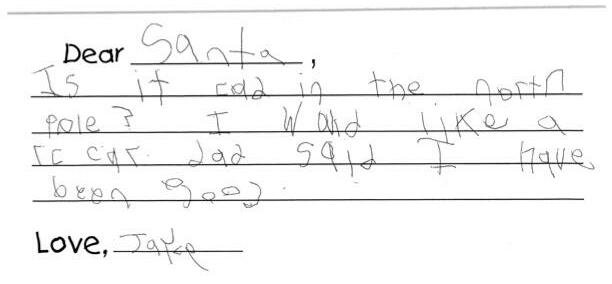 Dear Santa,
Is it cold in the north
pole? I wold like a
rc car. dad said I have
been good.
Love, Jake